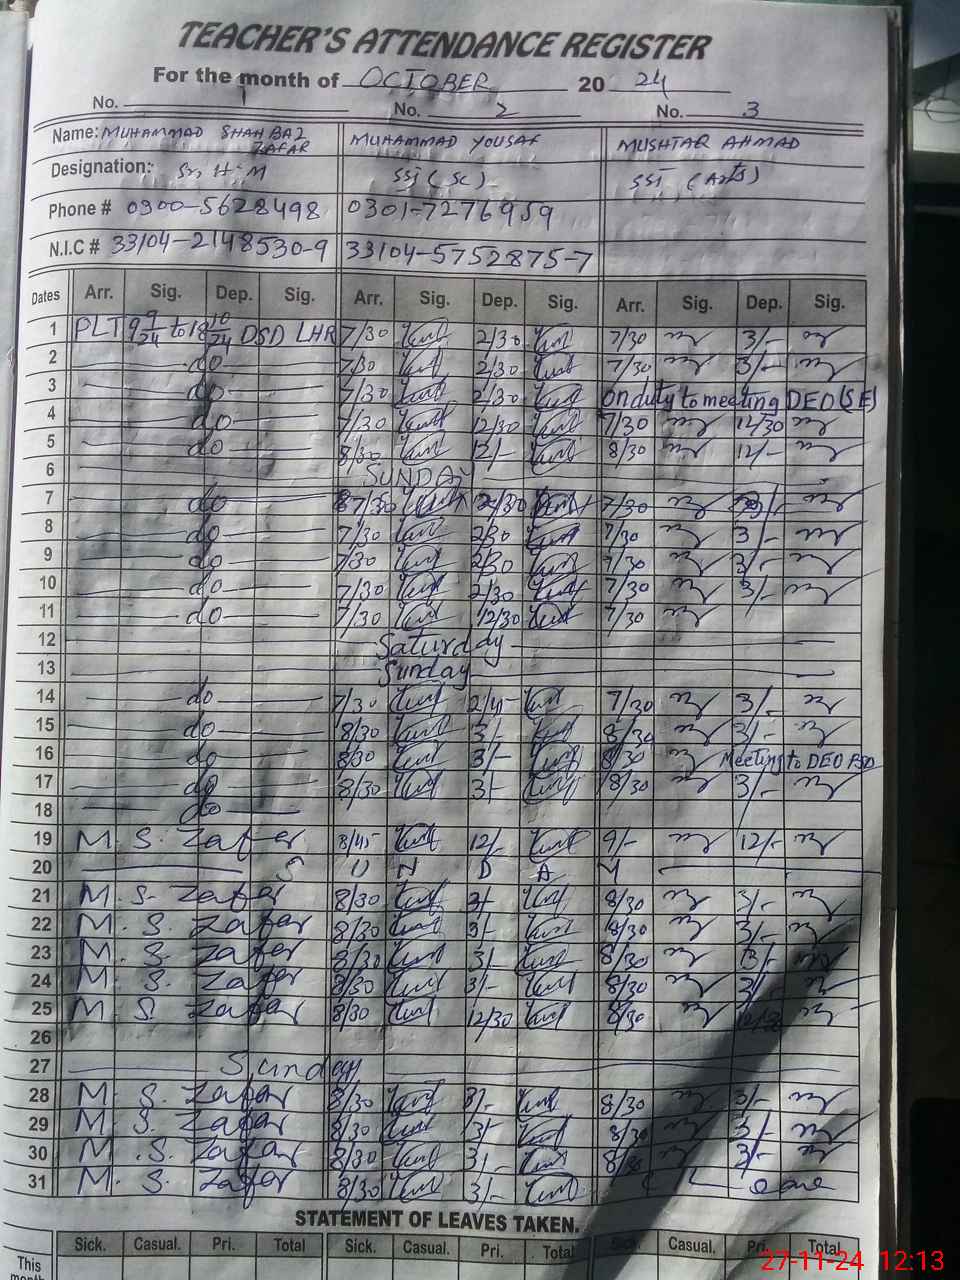 TEACHER'S ATTENDANCE REGISTER
For the month of OCTOBER 20 24
No. 1 No. 2 No. 3
Name: MUHAMMAD SHAHBAZ ZAFAR MUHAMMAD YOUSAF MUSHTAR AHMAD
Designation: Sr. H.M SST (SC) SST (Arts)
Phone # 0300-5628498 0301-7276959
N.I.C # 33104-2148530-9 33104-5752875-7
Dates Arr. Sig. Dep. Sig. Arr. Sig. Dep. Sig. Arr. Sig. Dep. Sig.
1 PLT 9 9/24 to 18 10/24 DSD LHR 7/30 2/30 7/30 3/-
2 do 7/30 2/30 7/30 3/-
3 do 7/30 2/30 on duty to meeting DEO (SE)
4 do 7/30 12/30 7/30 12/30
5 do 8/30 12/- 8/30 12/-
6 SUNDAY
7 do 7/30 2/30 7/30 3/-
8 do 7/30 2/30 7/30 3/-
9 do 7/30 2/30 7/30 3/-
10 do 7/30 2/30 7/30 3/-
11 do 7/30 12/30 7/30
12 Saturday
13 Sunday
14 do 7/30 2/45 7/30 3/-
15 do 8/30 3/- 8/30 3/-
16 do 8/30 3/- 8/30 Meeting to DEO FSD
17 do 8/30 3/- 8/30 3/-
18 do
19 M. S. Zafar 8/45 12/- 9/- 12/-
20 S U N D A Y
21 M. S. Zafar 8/30 3/- 8/30 3/-
22 M. S. Zafar 8/30 3/- 8/30 3/-
23 M. S. Zafar 8/30 3/- 8/30 3/-
24 M. S. Zafar 8/30 3/- 8/30 3/-
25 M. S. Zafar 8/30 12/30 8/30 12/30
26
27 Sunday
28 M. S. Zafar 8/30 3/- 8/30 3/-
29 M. S. Zafar 8/30 3/- 8/30 3/-
30 M. S. Zafar 8/30 3/- 8/30 3/-
31 M. S. Zafar 8/30 3/- C Leave
STATEMENT OF LEAVES TAKEN.
Sick. Casual. Pri. Total Sick. Casual. Pri. Total Sick. Casual. Pri. Total
This month
27-11-24 12:13